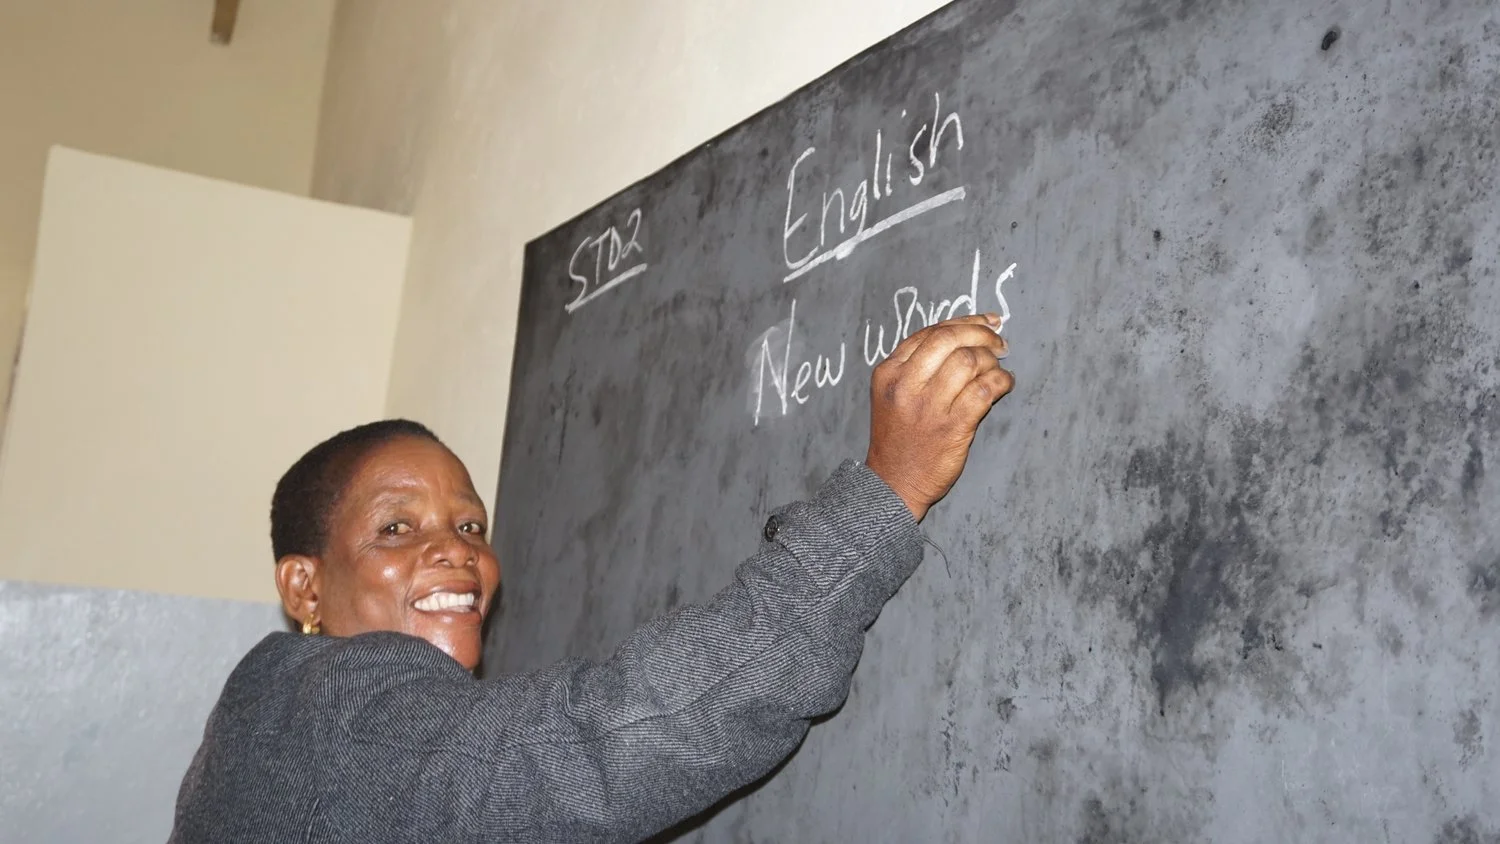 STD2
English
New words